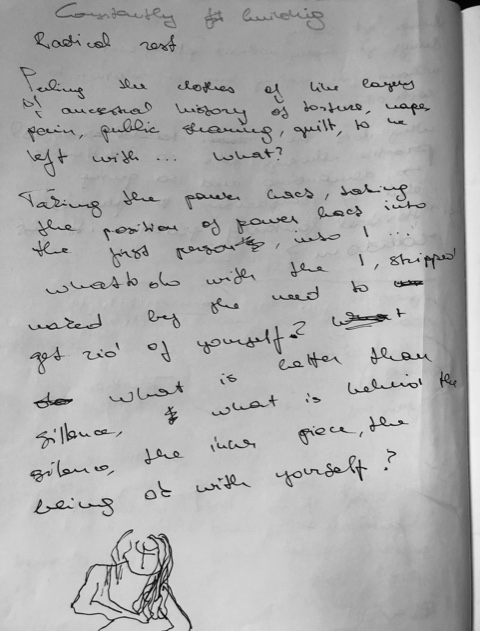 Constantly building
Radical rest
Peling the clothes of like layers
of ancestral history of torture, rape,
pain, public shaming, guilt, to be
left with ... what?
Taking the power bacs, taking
the position of power bacs into
the first person, into I ...
what to do with the I, stripped
naked by the need to
get rid of yourself?
what is better than
sillence, what is behind the
silence, the iner piece, the
being ok with yourself?